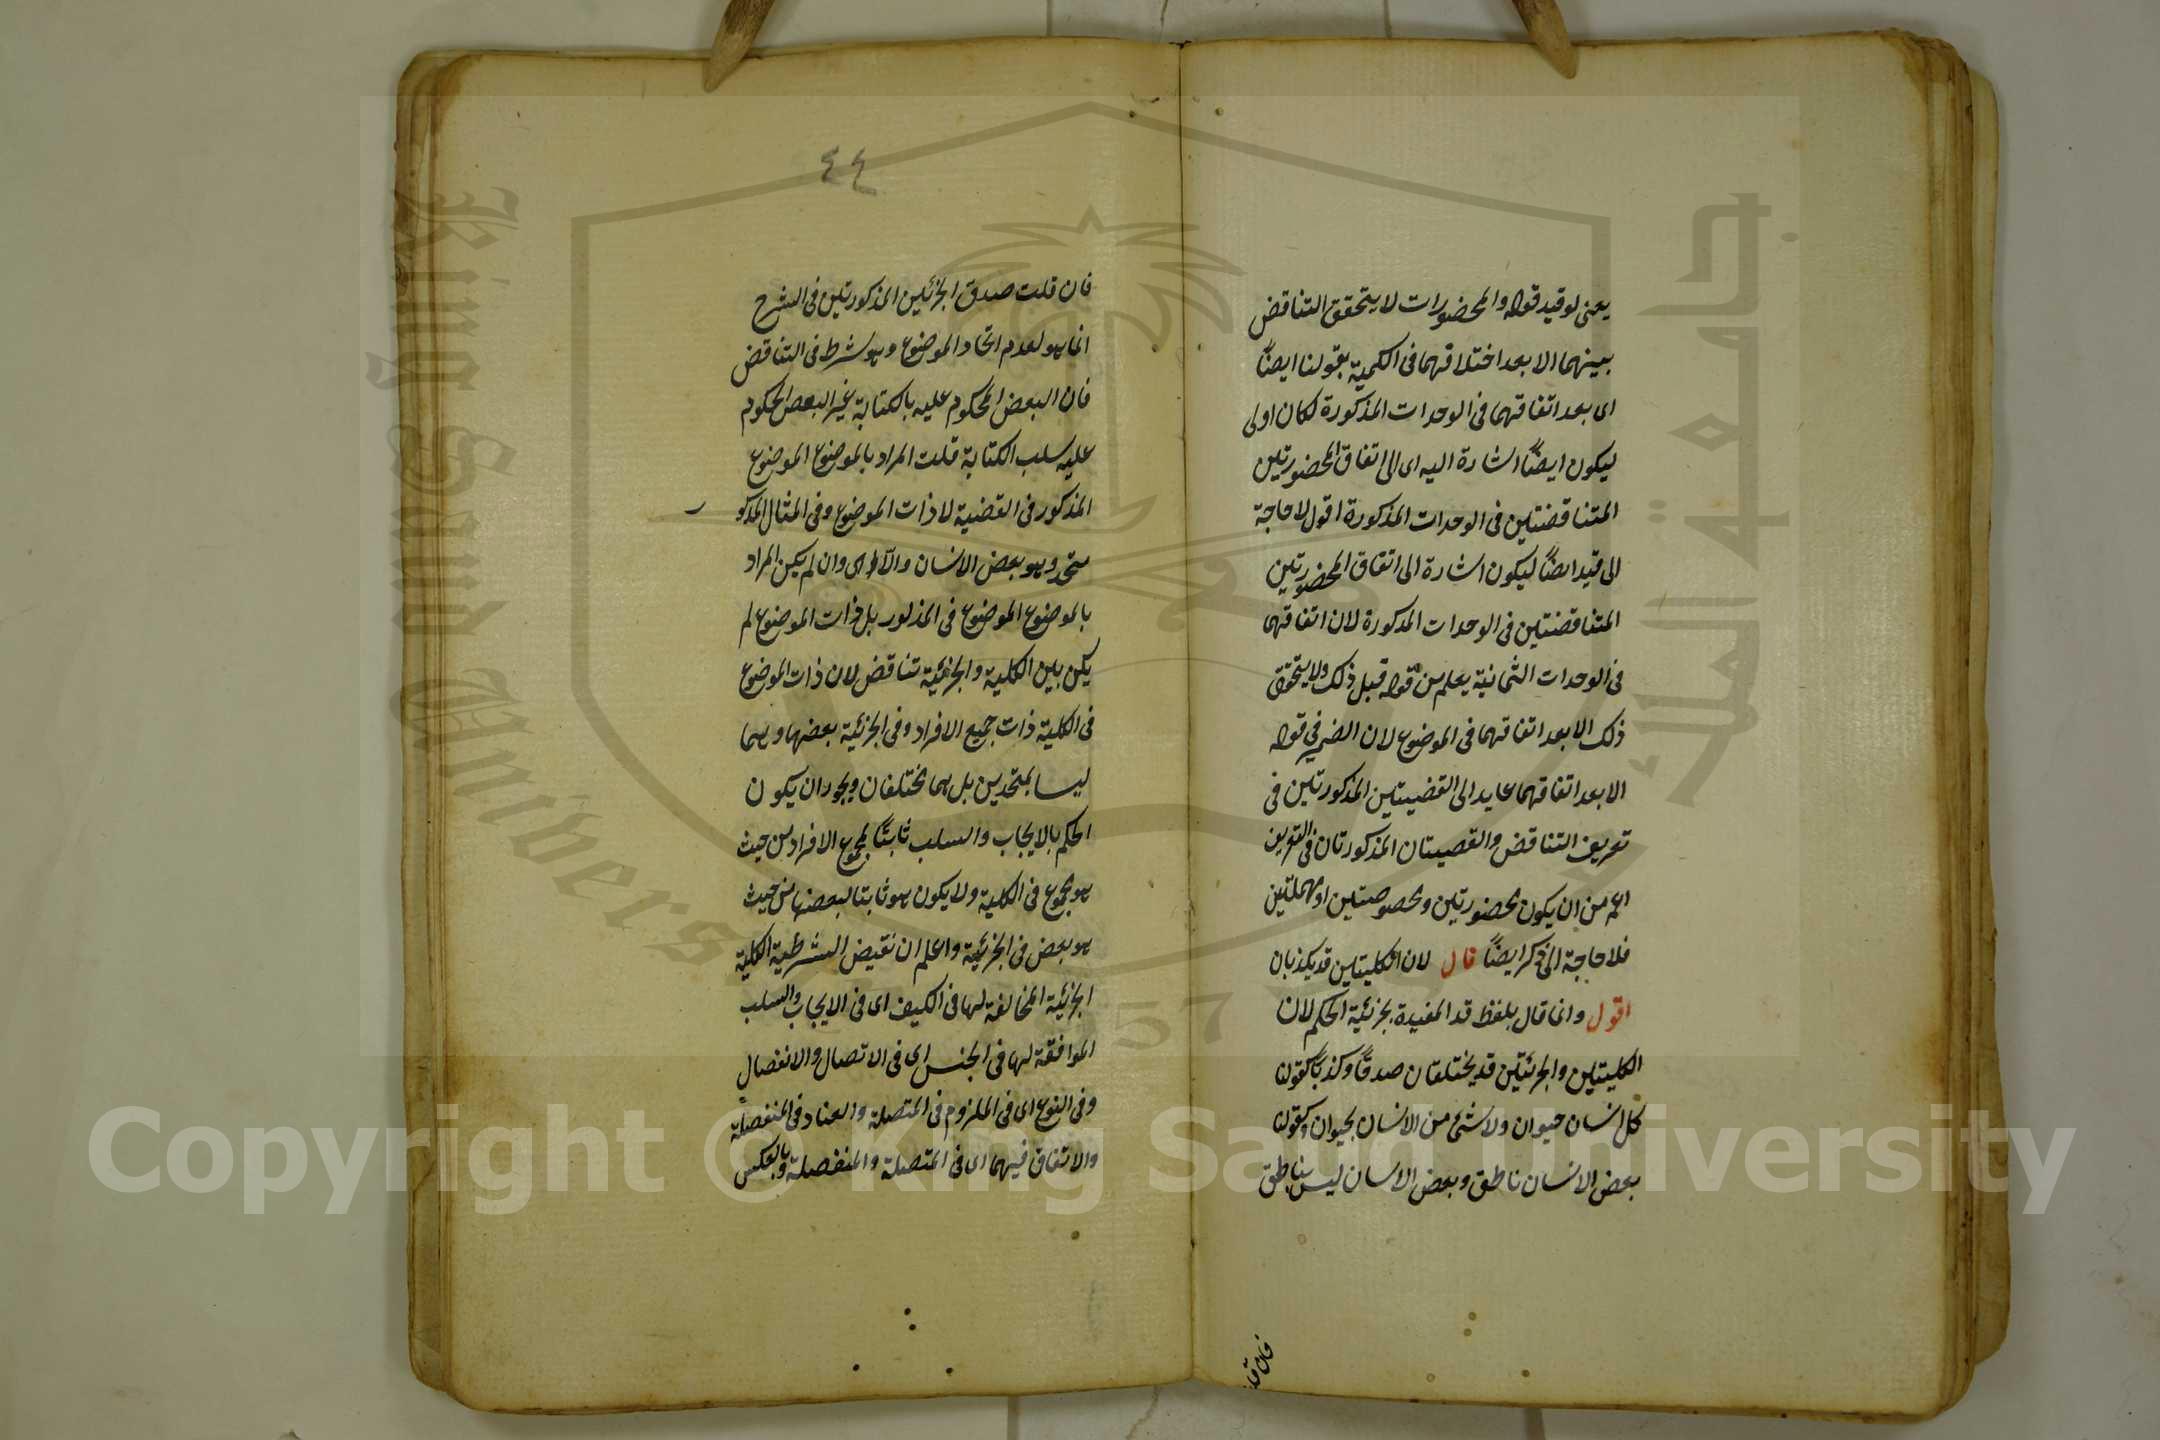 يعنى لو قيد قوله والمحضورات لا يتحقق التناقض
بينهما الا بعد اختلافهما فى الكمية بقولنا ايضاً
اى بعد اتفاقهما فى الوحدات المذكورة لكان اولى
ليكون ايضاً اشارة اليه اى الى اتفاق المحضورتين
المتناقضتين فى الوحدات المذكورة اقول لا حاجة
الى قيد ايضاً ليكون اشارة الى اتفاق المحضورتين
المتناقضتين فى الوحدات المذكورة لان اتفاقهما
فى الوحدات الثمانية يعلم من قوله قبل ذلك ولا يتحقق
ذلك الا بعد اتفاقهما فى الموضوع لان الضمير فى قوله
الا بعد اتفاقهما عايد الى القضيتين المذكورتين فى
تعريف التناقض والقضيتان المذكورتان فى التعريف
اعم من ان يكون محضورتين ومخصوصتين او مهملتين
فلا حاجة الى ذكر ايضاً قال لان الكليتين قد يكذبان
اقول وانما قال بلفظ قد المفيدة بجزئية الحكم لان
الكليتين والجزئيتين قد يختلفان صدقاً وكذباً كقولنا
كل انسان حيوان ولا شئ من الانسان بحيوان وكقولنا
بعض الانسان ناطق وبعض الانسان ليس بناطق
فان قلت
٤٤
فان قلت صدق الجزئتين المذكورتين فى الشرح
انما هو لعدم اتحاد الموضوع وهو شرط فى التناقض
فان البعض المحكوم عليه بالكتابة غير البعض المحكوم
عليه سلب الكتابة قلت المراد بالموضوع الموضوع
المذكور فى القضية لا ذات الموضوع وفى المثال المذكور
متحد وهو بعض الانسان والا اى وان لم يكن المراد
بالموضوع الموضوع فى المذكور بل ذات الموضوع لم
يكن بين الكلية والجزئية تناقض لان ذات الموضوع
فى الكلية ذات جميع الافراد وفى الجزئية بعضها وهما
ليسا بمتحدين بل هما مختلفان ويجوز ان يكون
الحكم بالايجاب والسلب ثابتاً لمجموع الافراد من حيث
هو مجموع فى الكلية ولا يكون هو ثابتا لبعضها من حيث
هو بعض فى الجزئية واعلم ان نقيض الشرطية الكلية
الجزئية المخالفة لها فى الكيف اى فى الايجاب والسلب
الموافقة لها فى الجنس اى فى الاتصال والانفصال
وفى النوع اى فى الملزوم فى المتصلة والعناد فى المنفصلة
والاتفاق فيهما اى فى المتصلة والمنفصلة وبالعكس
Copyright © King Saud University
جامعة الملك
King Saud University
1957